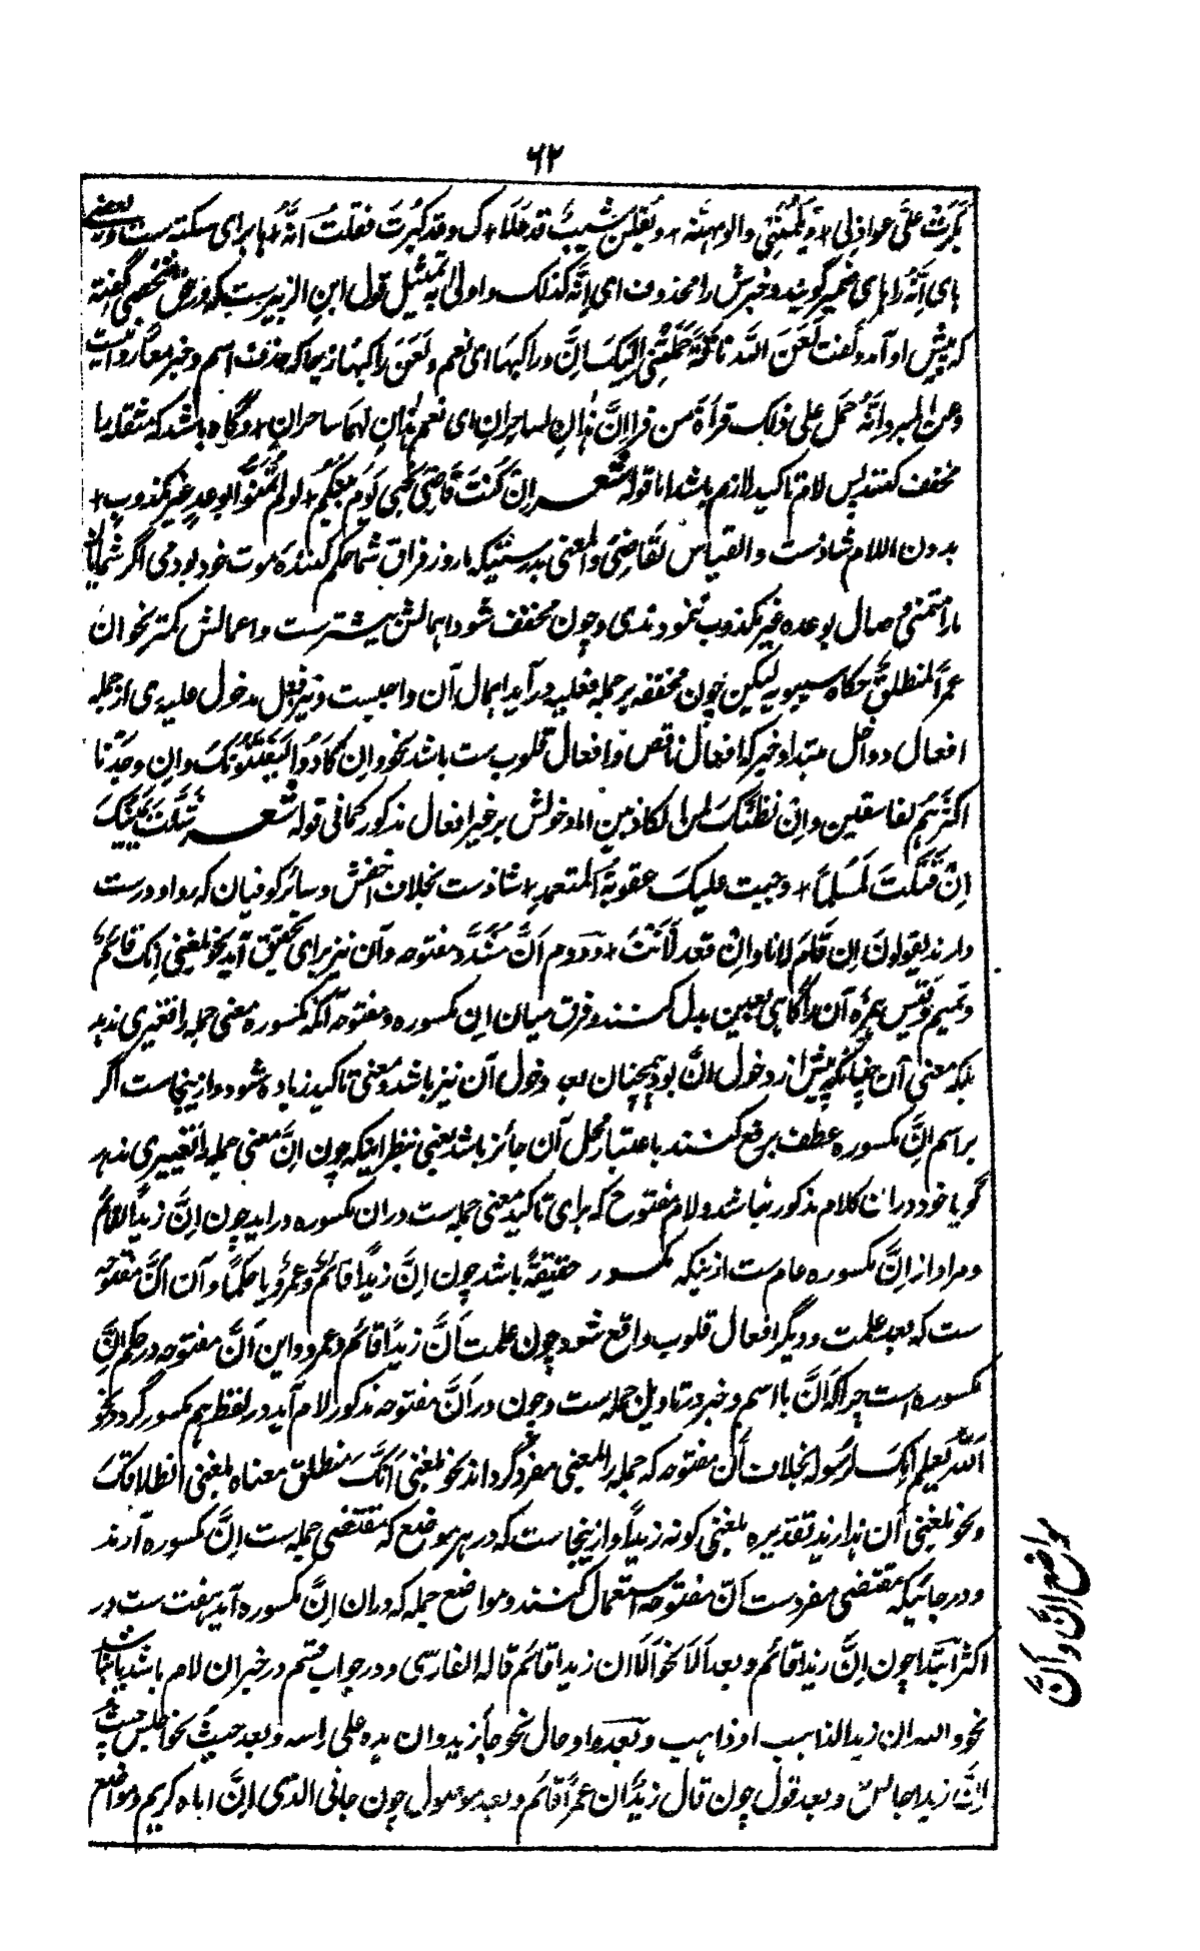 ۶۲
بَکَرَتْ علَّی عواذلی + یَلُمْنَنِی والومهنّه + ویَقُلْنَ شَیبٌ قد عَلا + ک وقد کَبُرتَ فقلتُ اِنَّهْ + ها برای سکته ست و بعضی
های اِنَّهْ را های ضمیر گویند و خبرش را محذوف ای اِنَّه کذلک و اولیٰ به تمثیل قول ابن الزبیرست که در شخصی گفته
که پیش او آمد و گفت لَعَنَ اللّٰه ناقةً حَمَلَتْنِی اِلَیکَ اِنَّ وراکبها ای نعم ولَعَنَ راکبها زیراکه حذف اسم و خبر معًا روا نیست
وعن المبرد اَنَّهُ حَمَل علی ذلک قرأةَ من قرا اِنَّ هٰذانِ لساحرانِ ای نعم هٰذانِ لهما ساحرانِ + و گاه باشد که مثقله را
مخفف کنند پس لام تاکید لازم باشد اما قوله شعر اِنْ کُنتَ قَاضِیَ نَحْبِی یَومَ بَیْنِکُم + لو لم تَمُنُّوا بوعدٍ غیرِ مکذوبِ +
بدون اللام شاذست والقیاس لَقَاضِیَ والمعنی بدرستیکه بروز فراق شما حکم کننده موت خود بودمی اگر شمایان
مارا متمنی وصال بوعده غیر مکذوب نمودندی و چون مخفف شود اهمالش بیشترست و اعمالش کمتر نحو اِنْ
عمراً لمنطلقٌ حکاه سیبویه لیکن چون مخففه بر جمله فعلیه در آید اهمال آن واجبست و نیز فعل مدخول علیه وی از جمله
افعال دواخل مبتدا و خبر که افعال ناقص و افعال قلوب ست باشد نحو و اِنْ کَادُوا لَیَفتِنُونَکَ و اِن وجَدْنا
اکثرَهُم لفاسقین و اِنْ نَظُنُّکَ لمن الکاذبین اما دخولش بر غیر افعال مذکور کما فی قوله شعر شَلَّتْ یَمِینُکَ
اِنْ قَتَلْتَ لَمُسْلِماً + وجبت علیکَ عقوبةُ المتعمدِ + شاذست بخلاف اخفش و سائر کوفیان که روا و درست
دارند یقولون اِن قَامَ لانا و اِنْ قعد لَاَنْتَ + و دوم اَنَّ مُشَدَّد مفتوحه و آن نیز برای تحقیق آید نحو بلغنی اَنکَ قائمٌ
و تمیم و قیس همزه آن را گاهی بعین بدل کنند و فرق میان اِن مکسوره و مفتوحه آنکه مکسوره معنی جمله را تغیری ندهد
بلکه معنی آن چنانکه پیش از دخول انَّ بود همچنان بعد دخول آن نیز باشد و معنی تاکید زیاده شود و ازینجاست اگر
بر اسم اِنَّ مکسوره عطف برفع کنند باعتبار محل آن جائز باشد یعنی بنظر اینکه چون اِنَّ معنی جمله را تغییری ندهد
گویا خود دران کلام مذکور نباشد و لام مفتوح که برای تاکید معنی جمله ست دران مکسوره در اید چون اِنَّ زیداً لقائم
و مراد از اِنَّ مکسوره عام ست ازینکه مکسور حقیقةً باشد چون اِنَّ زیداً قائمٌ و عمرٌو یا حکماً و آن اَنَّ مفتوحه
ست که بعد علمت و دیگر افعال قلوب واقع شود چون علمت اَنَّ زیداً قائم و عمرو و این اَنَّ مفتوحه در حکم اِنَّ
مکسوره است چراکه اَنَّ با اسم و خبر در تاویل جمله ست و چون در اَنَّ مفتوحه مذکور لام آید در لفظ هم مکسور گردد نحو
اَللّٰهُ یعلم اِنَّکَ لَرَسُولُه بخلاف اَنَّ مفتوحه که جمله را بمعنی مفرد گرداند نحو بلغنی اَنَّکَ منطلقٌ معناه بلغنی انطلاقکَ
و نحو بلغنی اَن هذا زید تقدیره بلغنی کونه زیداً و ازینجاست که در هر موضع که مقتضی جمله ست اِنَّ مکسوره آرند
و در جائیکه مقتضی مفردست اَنَّ مفتوحه استعمال کنند و مواضع جمله که دران اِنَّ مکسوره آید هفت ست در
اکثر ابتدا چون اِنَّ زیدا قائم و بعد اَلَا نحو اَلَا ان زیدا قائم قاله الفارسی و در جواب قسم در خبر ان لام باشد یا نباشد
نحو والله ان زیدا لذاهب او ذاهب و بعد واو حال نحو جأ زید و ان یده علی راسه و بعد حیثُ نحو اجلس حیثُ
اِنَّ زیدا جالسٌ و بعد قول چون قال زیدٌ ان عمراً قائم و بعد موصول چون جانی الذی اِنَّ اباه کریم و مواضع
مواضع اِنَّ و اَنَّ